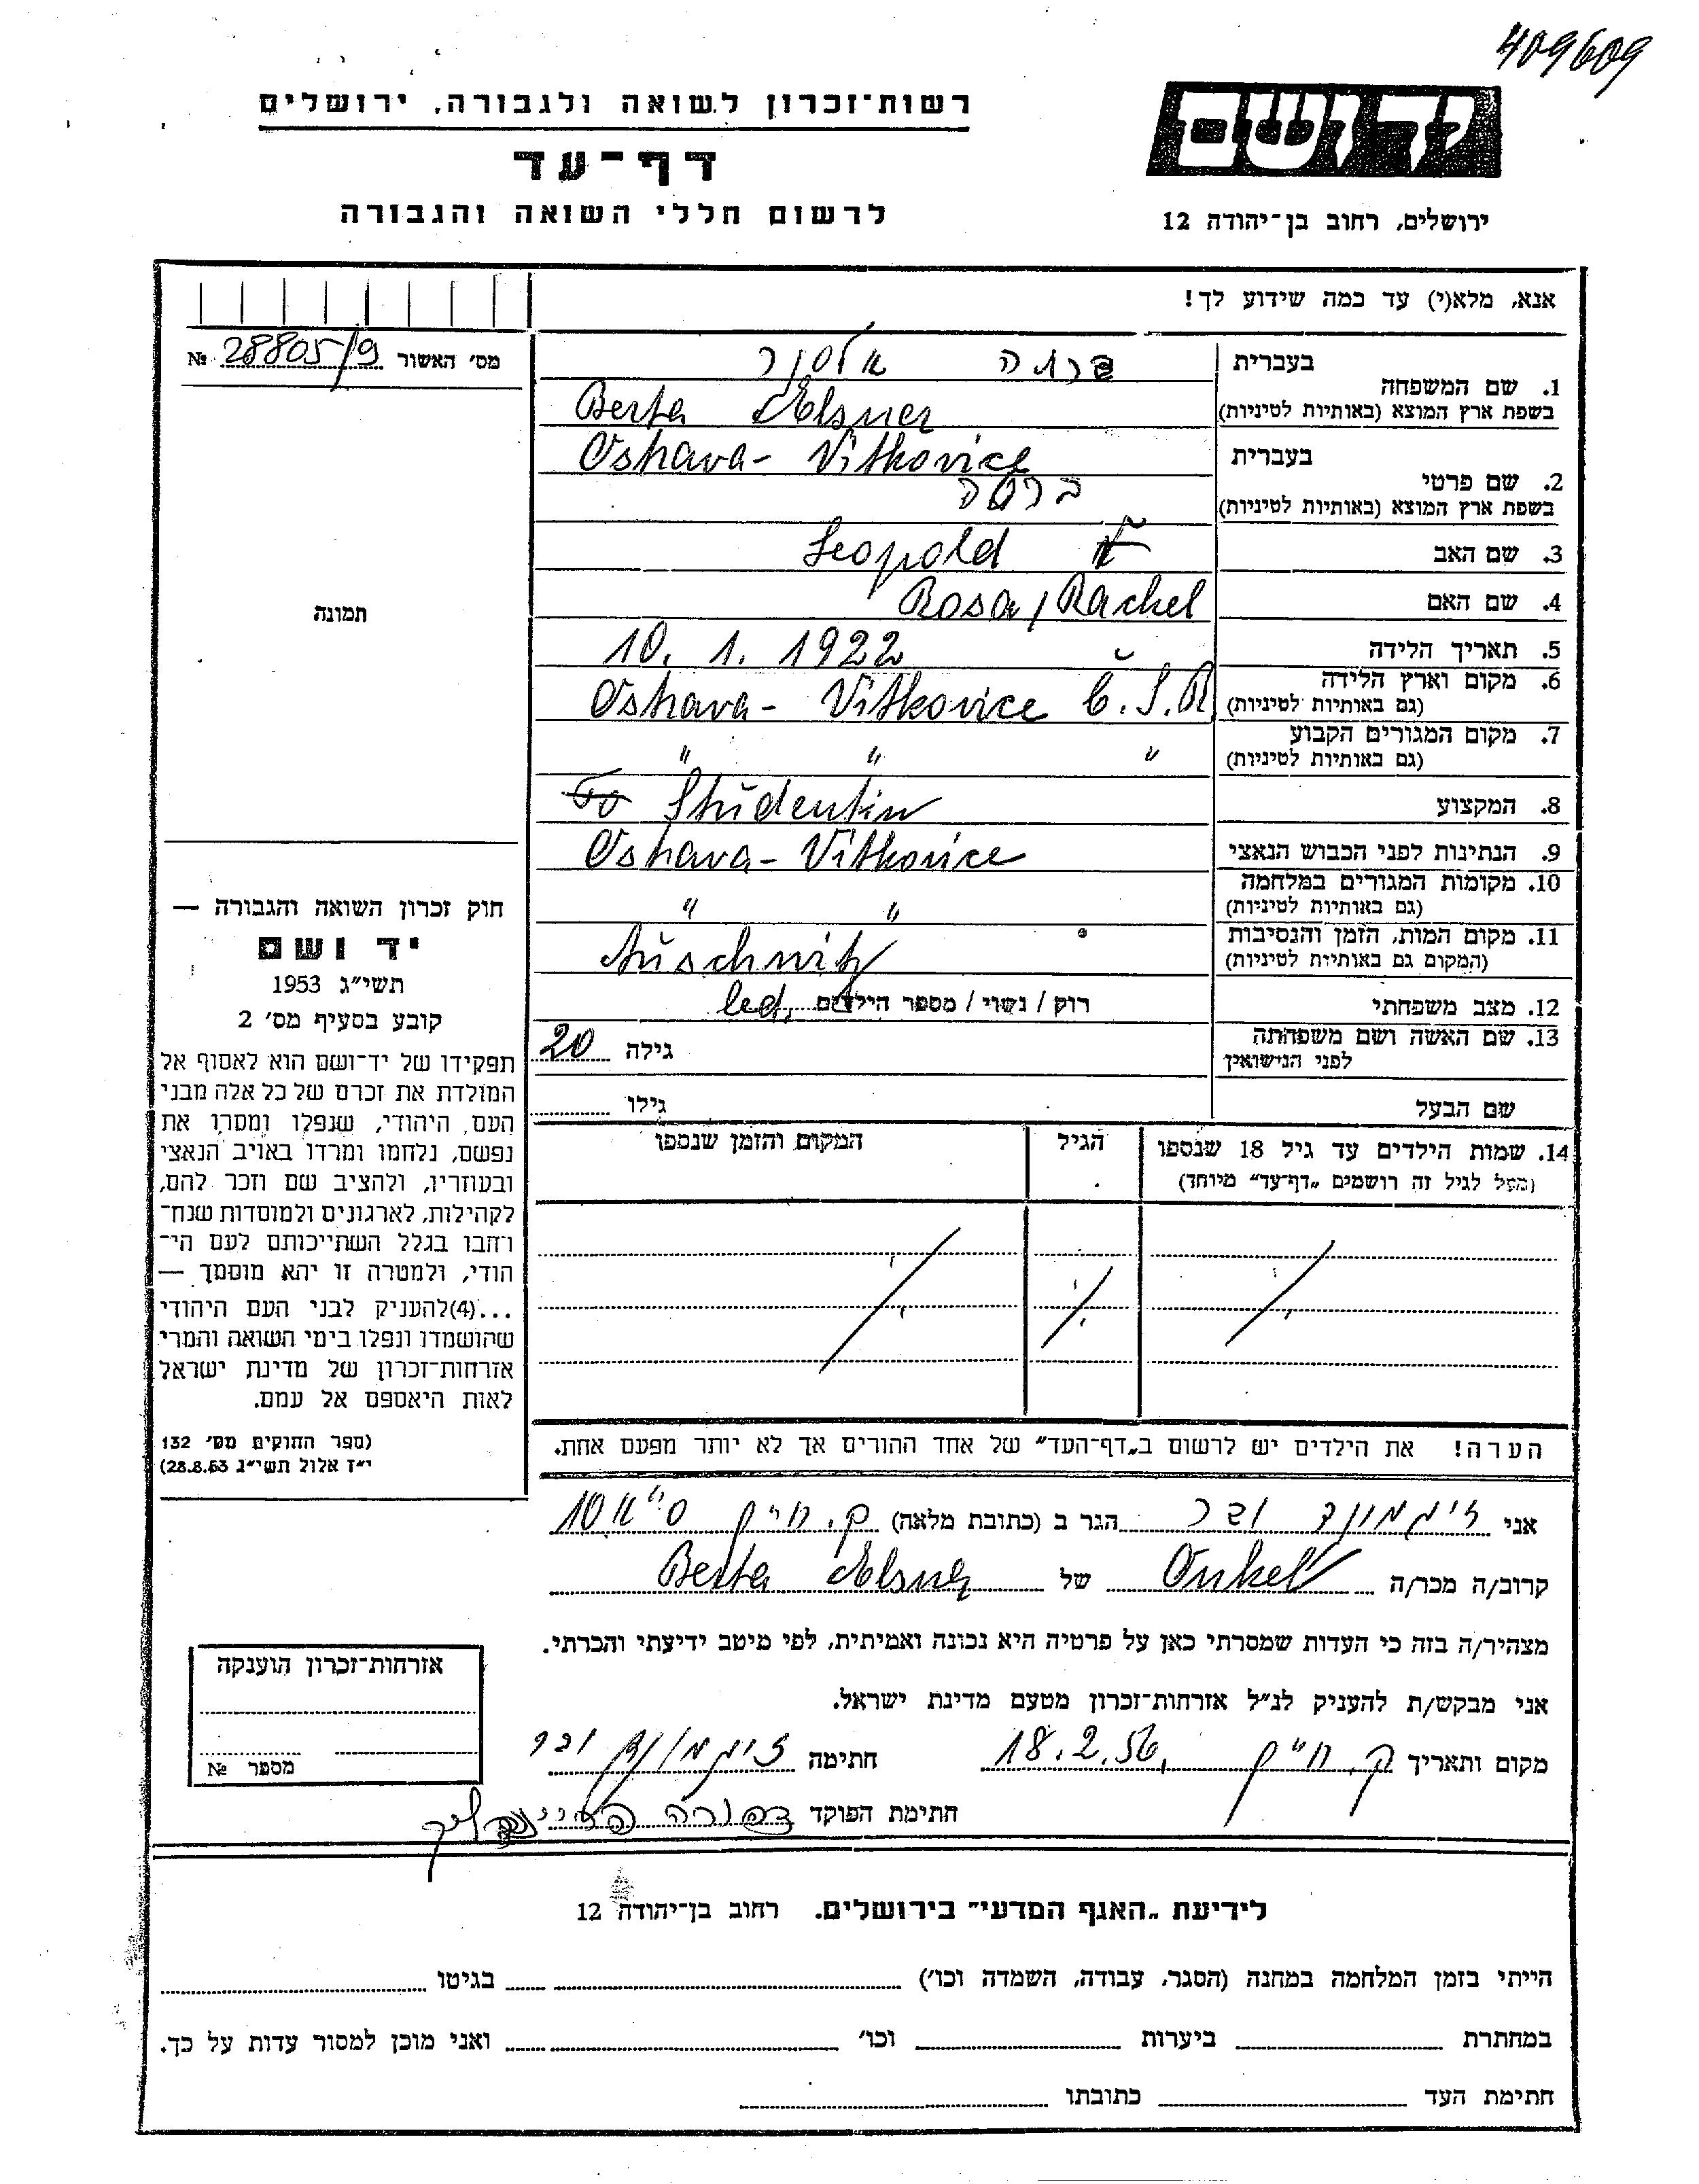 409609
ידושם
רשות־זכרון לשואה ולגבורה, ירושלים
דף־עד
לרשום חללי השואה והגבורה
ירושלים, רחוב בן־יהודה 12
אנא, מלא(י) עד כמה שידוע לך!
מס׳ האשור 28805/9 №
בעברית אלסנר
1. שם המשפחה
בשפת ארץ המוצא (באותיות לטיניות) Berta Elsner
בעברית Ostrava - Vitkovice
2. שם פרטי ברטה
בשפת ארץ המוצא (באותיות לטיניות)
3. שם האב Leopold
4. שם האם Rosa / Rachel
5. תאריך הלידה 10. 1. 1922
6. מקום וארץ הלידה Ostrava - Vitkovice Č.S.R
(גם באותיות לטיניות)
7. מקום המגורים הקבוע " " "
(גם באותיות לטיניות)
8. המקצוע Studentin
9. הנתינות לפני הכבוש הנאצי Ostrava - Vitkovice
10. מקומות המגורים במלחמה " "
(גם באותיות לטיניות)
11. מקום המות, הזמן והנסיבות Auschwitz
(המקום גם באותיות לטיניות)
12. מצב משפחתי רוק / נשוי / מספר הילדים led.
13. שם האשה ושם משפחתה גילה 20
לפני הנישואין
שם הבעל גילו
14. שמות הילדים עד גיל 18 שנספו הגיל המקום והזמן שנספו
(מעל לגיל זה רושמים „דף־עד” מיוחד)
הערה! את הילדים יש לרשום ב„דף־העד” של אחד ההורים אך לא יותר מפעם אחת.
תמונה
חוק זכרון השואה והגבורה —
יד ושם
תשי״ג 1953
קובע בסעיף מס׳ 2
תפקידו של יד־ושם הוא לאסוף אל
המולדת את זכרם של כל אלה מבני
העם היהודי, שנפלו ומסרו את
נפשם, נלחמו ומרדו באויב הנאצי
ובעוזריו, ולהציב שם וזכר להם,
לקהילות, לארגונים ולמוסדות שנח־
רחבו בגלל השתייכותם לעם הי־
הודי, ולמטרה זו יהא מוסמך —
...(4)להעניק לבני העם היהודי
שהושמדו ונפלו בימי השואה והמרי
אזרחות־זכרון של מדינת ישראל
לאות היאספם אל עמם.
(ספר החוקים מס׳ 132
י״ז אלול תשי״ג 28.8.53)
אני זיגמונד ובר הגר ב (כתובת מלאה) ק. חיים 10
קרוב/ה מכר/ה Onkel של Berta Elsner
מצהיר/ה בזה כי העדות שמסרתי כאן על פרטיה היא נכונה ואמיתית, לפי מיטב ידיעתי והכרתי.
אני מבקש/ת להעניק לנ״ל אזרחות־זכרון מטעם מדינת ישראל.
מקום ותאריך ק. חיים 18.2.56, חתימה זיגמונד ובר
חתימת הפוקד
אזרחות־זכרון הוענקה
מספר №
לידיעת „האגף המדעי” בירושלים. רחוב בן־יהודה 12
הייתי בזמן המלחמה במחנה (הסגר, עבודה, השמדה וכו׳) בגיטו
במחתרת ביערות וכו׳ ואני מוכן למסור עדות על כך.
חתימת העד כתובתו